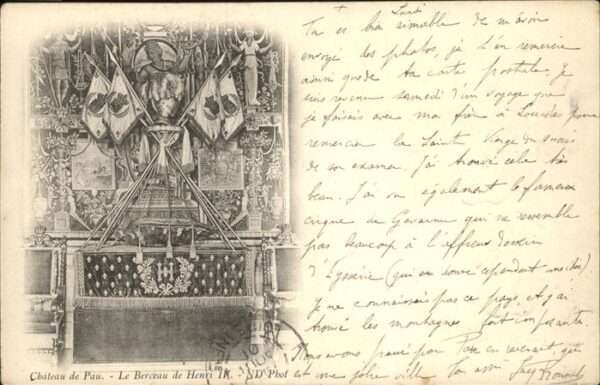 Tante
Tu es bien aimable de m'avoir
envoyé des photos, je t'en remercie
ainsi que de ta carte postale. Je
suis revenue samedi d'un voyage que
je faisais avec mon frère à Lourdes pour
remercier la Sainte Vierge du succès
de son examen. J'ai trouvé cela très
beau. J'ai vu également le fameux
cirque de Gavarnie qui ne ressemble
pas beaucoup à l'affreux dessin
d'
Je ne connaissais pas ce pays, et j'ai
trouvé les montagnes fort imposantes.
Nous avons passé par Pau en revenant qui
est une jolie ville
Château de Pau. - Le Berceau de Henri IV. - ND Phot